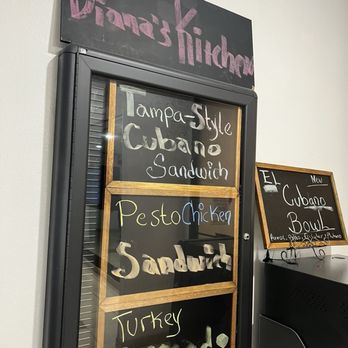 Diana's Kitchen
Tampa-Style
Cubano
Sandwich
Pesto Chicken
Sandwich
Turkey
El New
Cubano
Bowl